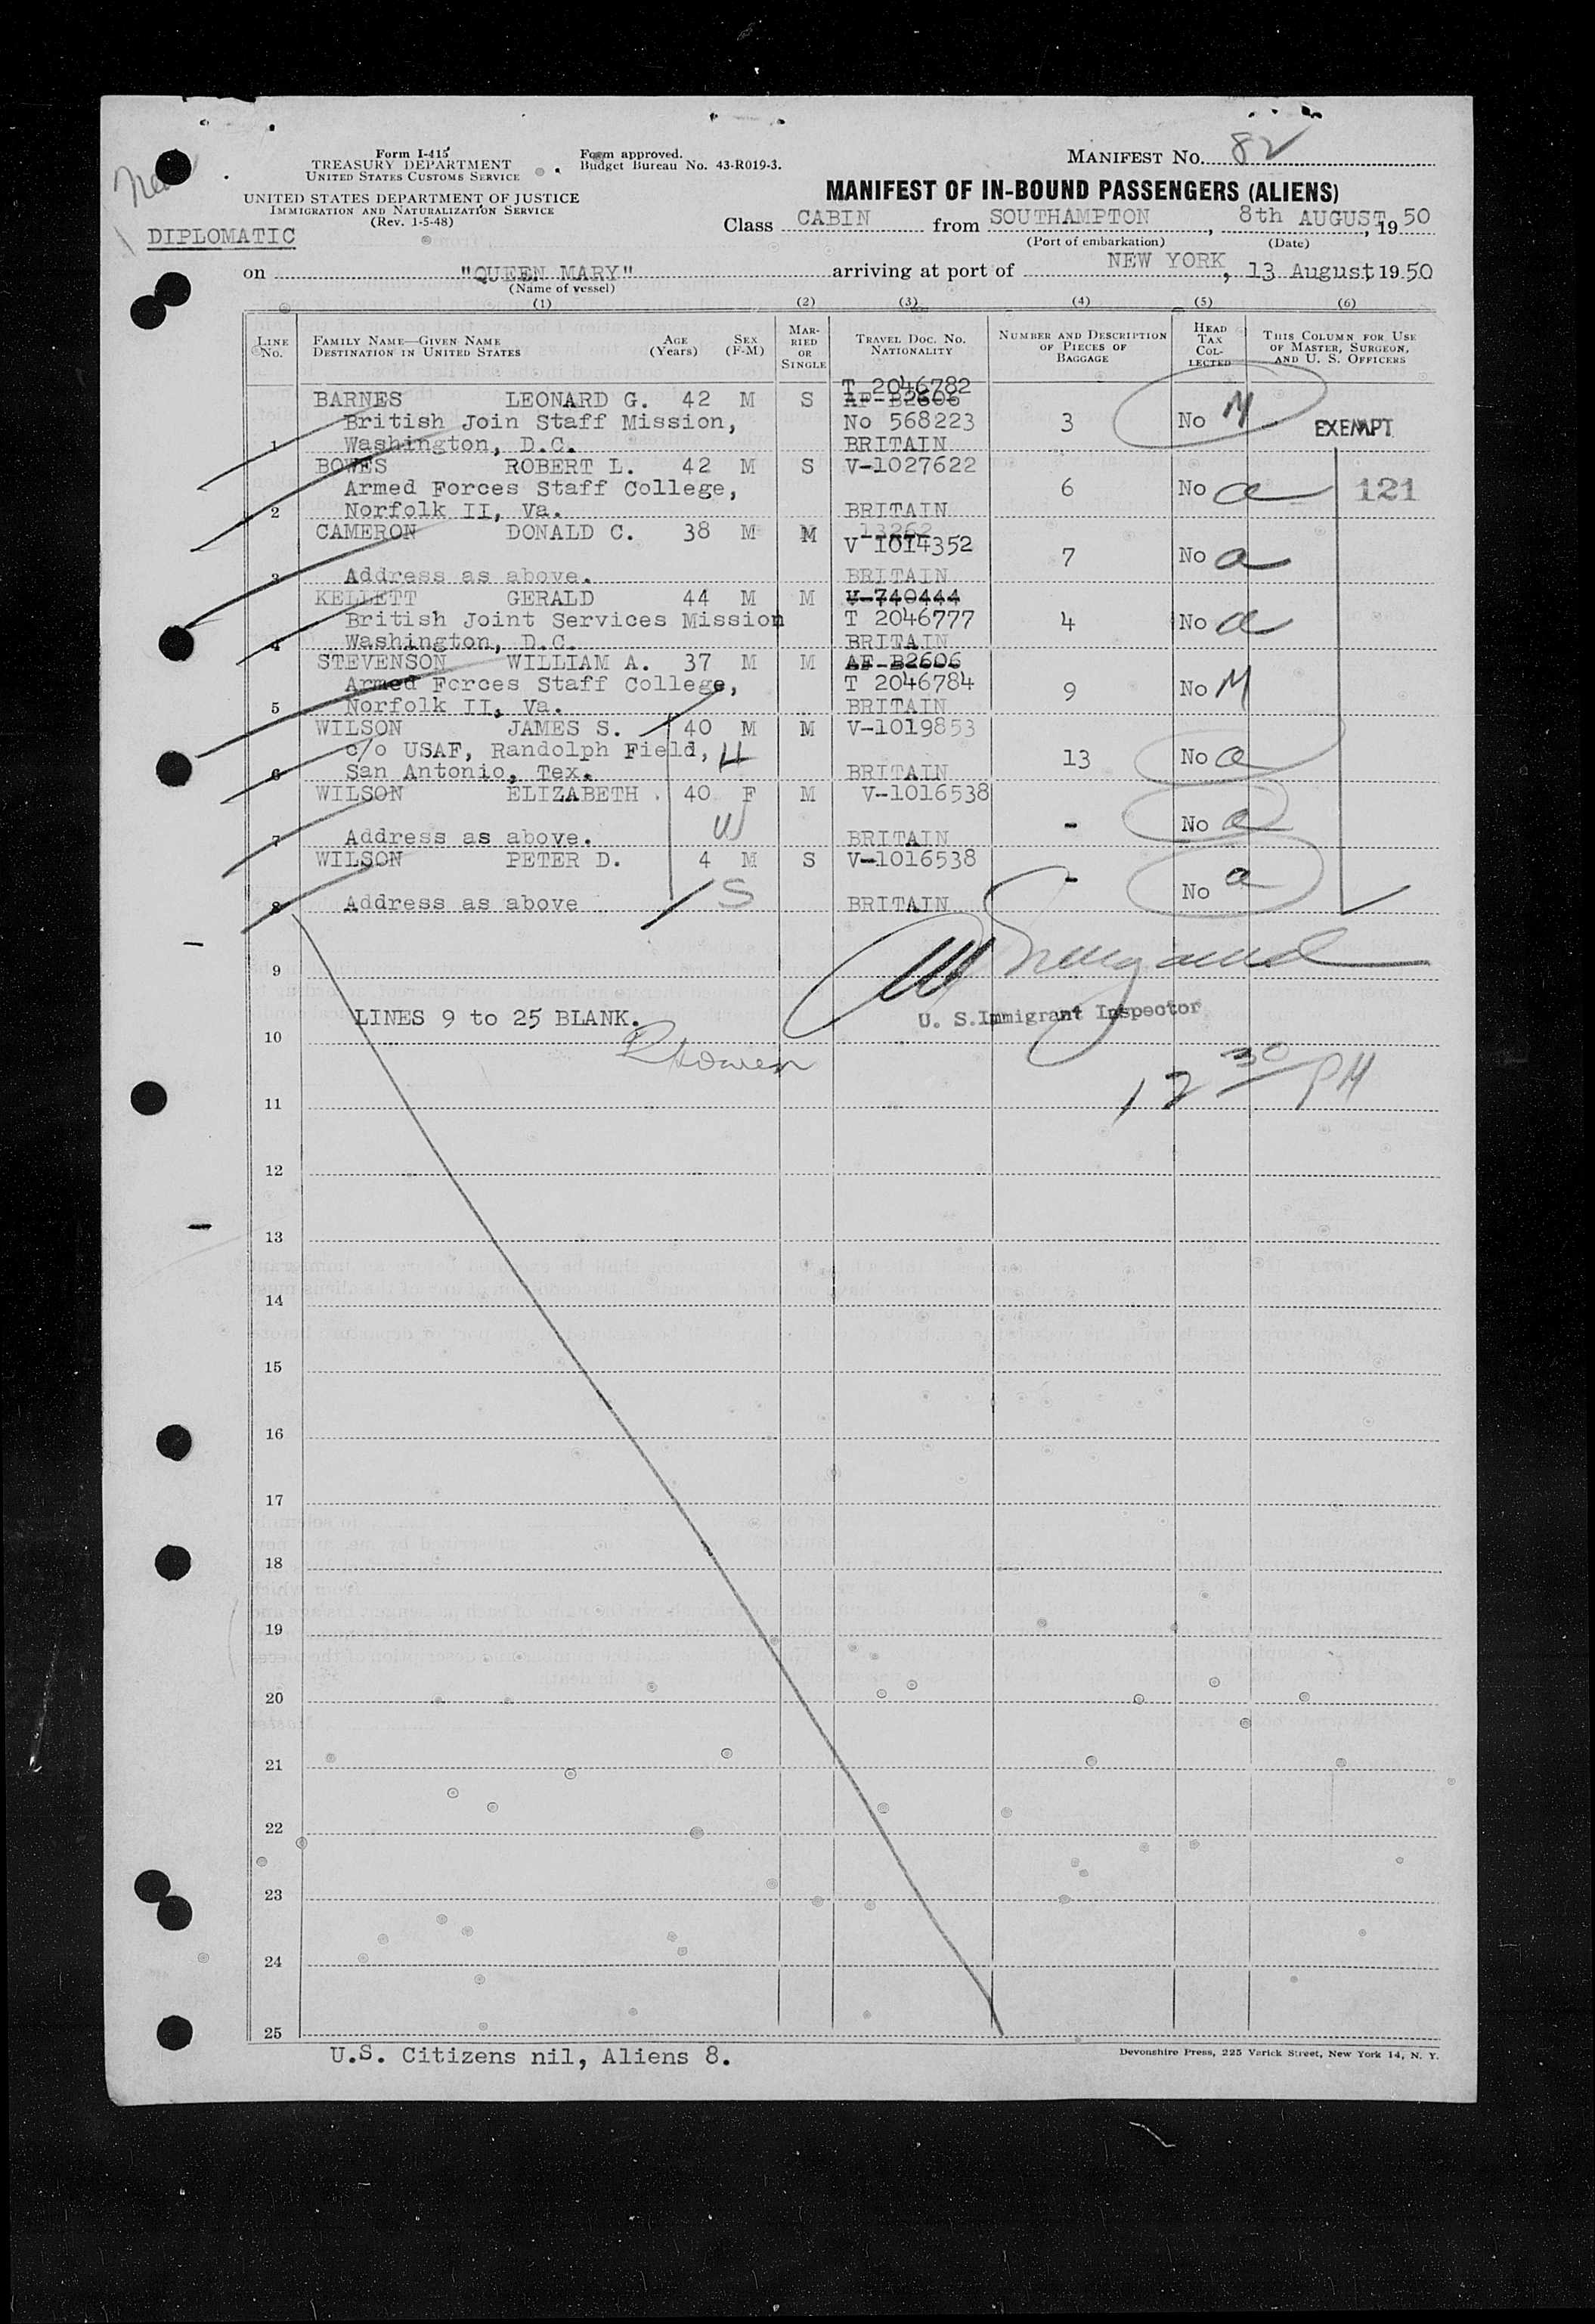 Form I-415
TREASURY DEPARTMENT
UNITED STATES CUSTOMS SERVICE
Form approved.
Budget Bureau No. 43-R019-3.
MANIFEST NO. 82
UNITED STATES DEPARTMENT OF JUSTICE
IMMIGRATION AND NATURALIZATION SERVICE
(Rev. 1-5-48)
MANIFEST OF IN-BOUND PASSENGERS (ALIENS)
DIPLOMATIC
Class CABIN from SOUTHAMPTON, 8th AUGUST, 19 50
(Port of embarkation) (Date)
on "QUEEN MARY" arriving at port of NEW YORK, 13 August, 19 50
(Name of vessel)
(1) (2) (3) (4) (5) (6)
LINE No. FAMILY NAME—GIVEN NAME DESTINATION IN UNITED STATES AGE (Years) SEX (F-M) MARRIED OR SINGLE TRAVEL DOC. NO. NATIONALITY NUMBER AND DESCRIPTION OF PIECES OF BAGGAGE HEAD TAX COLLECTED THIS COLUMN FOR USE OF MASTER, SURGEON, AND U. S. OFFICERS
T 2046782
BARNES LEONARD G. 42 M S AF-B2606
British Join Staff Mission, No 568223 3 No M EXEMPT
1 Washington, D.C. BRITAIN
BOWES ROBERT L. 42 M S V-1027622
Armed Forces Staff College, 6 No a 121
2 Norfolk II, Va. BRITAIN
CAMERON DONALD C. 38 M M 13262
V 1014352 7 No a
3 Address as above. BRITAIN
KELLETT GERALD 44 M M V-740444
British Joint Services Mission T 2046777 4 No a
4 Washington, D.C. BRITAIN
STEVENSON WILLIAM A. 37 M M AF-B2606
Armed Forces Staff College, T 2046784 9 No M
5 Norfolk II, Va. BRITAIN
WILSON JAMES S. 40 M M V-1019853
c/o USAF, Randolph Field, H 13 No a
6 San Antonio, Tex. BRITAIN
WILSON ELIZABETH . 40 F M V-1016538
W - No a
7 Address as above. BRITAIN
WILSON PETER D. 4 M S V-1016538
S - No a
8 Address as above BRITAIN
9
LINES 9 to 25 BLANK. U. S. Immigrant Inspector
10
12 30 PM
11
12
13
14
15
16
17
18
19
20
21
22
23
24
25
U.S. Citizens nil, Aliens 8.
Devonshire Press, 225 Varick Street, New York 14, N. Y.